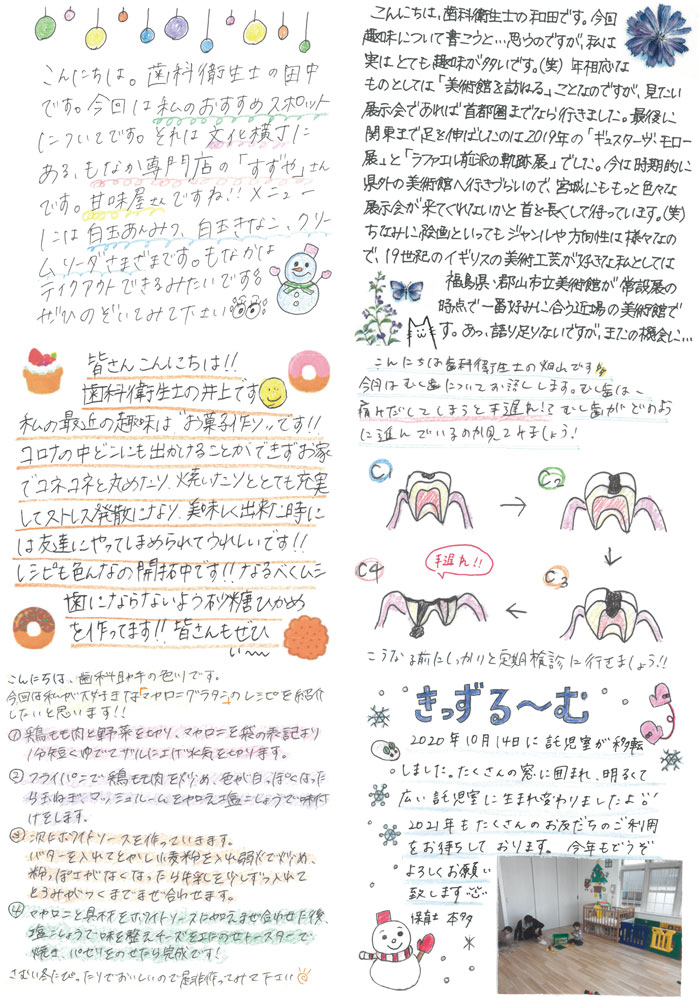 こんにちは。歯科衛生士の田中
です。今回は私のおすすめスポット
についてです。それは文化横丁に
ある、もなか専門店の「すずや」さん
です。甘味屋さんですね!!メニュー
には白玉あんみつ、白玉きなこ、クリー
ムソーダさまざまです。もなかは
テイクアウトできるみたいです。
ぜひのぞいてみて下さい
皆さんこんにちは!!
歯科衛生士の井上です
私の最近の趣味は"お菓子作り"です!!
コロナの中どこにも出かけることができずお家
でコネコネと丸めたり、焼いたりととても充実
してストレス発散になり、美味しく出来た時に
は友達にやってしまめられてうれしいです!!
レシピも色んなの開拓中です!!なるべくムシ
歯にならないようお砂糖ひかめ
を作ってます!!皆さんもぜひ
い〜
こんにちは、歯科助手の色川です。
今回は私が大好きな「マカロニグラタン」のレシピを紹介
したいと思います!!
① 鶏もも肉と野菜を切り、マカロニを袋の表記より
1分短くゆでてザルに上げ水気を切ります。
② フライパンで鶏もも肉を炒め、色が白っぽくなった
ら玉ねぎ、マッシュルームを加え塩こしょうで味付
けをします。
③ 次にホワイトソースを作っていきます。
バターを入れてとかし小麦粉を入れ弱火で炒め、
粉っぽさがなくなったら牛乳を少しずつ入れて
とろみがつくまでまぜ合わせます。
④ マカロニと具材をホワイトソースに加えまぜ合わせた後、
塩こしょうで味を整えチーズを上にのせトースターで
焼き、パセリをのせたら完成です!
さむい冬にぴったりでおいしいので是非作ってみて下さい
こんにちは、歯科衛生士の和田です。今回
趣味について書こうと…思うのですが、私は
実はとても趣味が少ないです。(笑) 年相応な
ものとしては「美術館を訪ねる」ことなのですが、見たい
展示会であれば首都圏までなら行きました。最後に
関東まで足を伸ばしたのは2019年の「ギュスターヴ・モロー
展」と「ラファエル前派の軌跡展」でした。今は時期的に
県外の美術館へ行きづらいので、宮城にももっと色々な
展示会が来てくれないかと首を長くして待っています。(笑)
ちなみに絵画といってもジャンルや方向性は様々なの
で、19世紀のイギリスの美術工芸が好きな私としては
福島県・郡山市立美術館が常設展の
時点で一番好みに合う近場の美術館で
す。あっ、語り足りないですが、またの機会に…
こんにちは歯科衛生士の畑山です
今日はむし歯についてお話しします。むし歯は、
痛みだしてしまうと手遅れ!?むし歯がどのよう
に進んでいるのか見てみましょう!
C1
C2
手遅れ!!
C4
C3
こうなる前にしっかりと定期検診に行きましょう!!
きっずる〜む
2020年10月14日に託児室が移転
しました。たくさんの窓に囲まれ、明るくて
広い託児室に生まれ変わりましたよ
2021年もたくさんのお友だちのご利用
をお待ちしております。今年もどうぞ
よろしくお願い
致します
保育士 本多